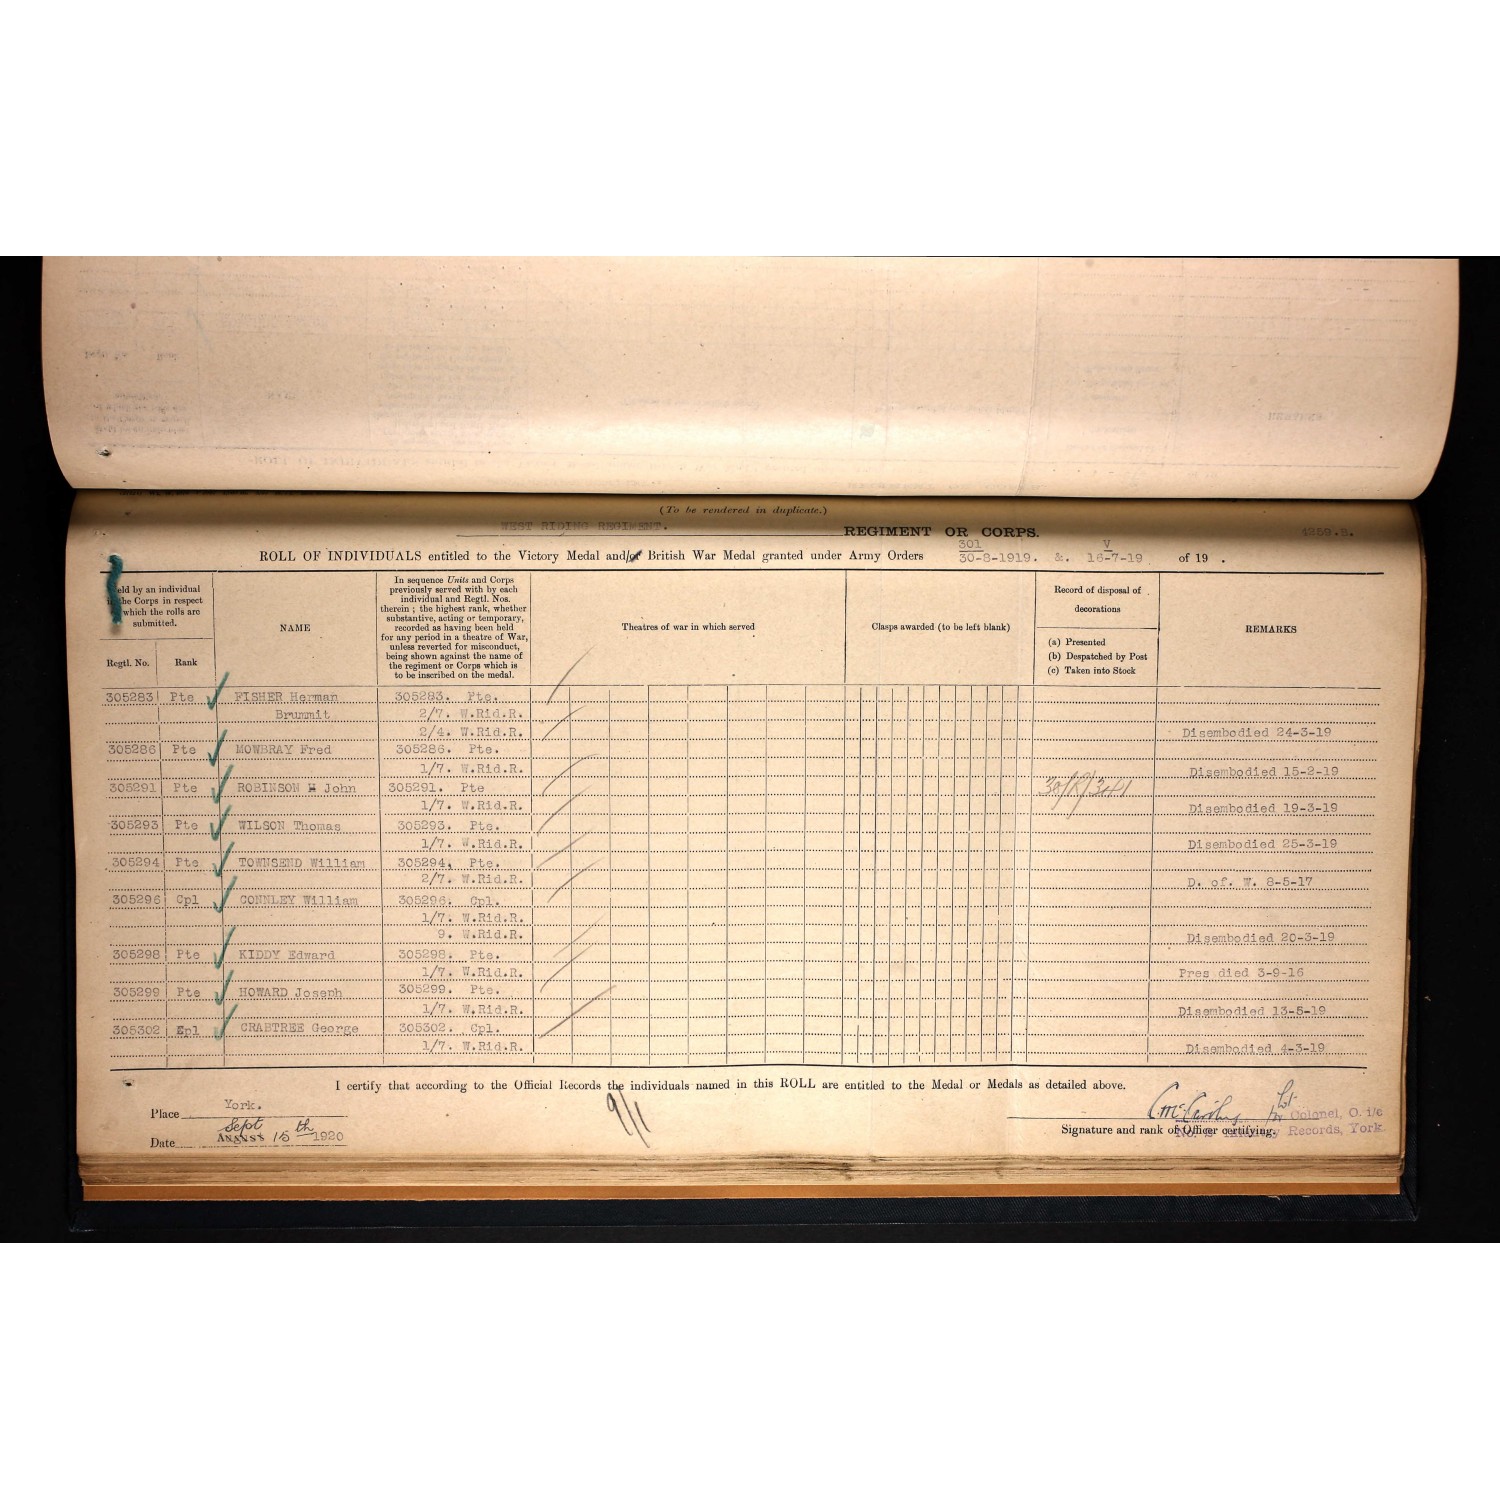 (To be rendered in duplicate.)
WEST RIDING REGIMENT. REGIMENT OR CORPS. 1259.B.
ROLL OF INDIVIDUALS entitled to the Victory Medal and/or British War Medal granted under Army Orders 301/30-8-1919. &. V/16-7-19 of 19 .
Held by an individual
in the Corps in respect
of which the rolls are
submitted.
Regtl. No. Rank
NAME
In sequence Units and Corps
previously served with by each
individual and Regtl. Nos.
therein ; the highest rank, whether
substantive, acting or temporary,
recorded as having been held
for any period in a theatre of War,
unless reverted for misconduct,
being shown against the name of
the regiment or Corps which is
to be inscribed on the medal.
Theatres of war in which served
Clasps awarded (to be left blank)
Record of disposal of
decorations
(a) Presented
(b) Despatched by Post
(c) Taken into Stock
REMARKS
305283 Pte FISHER Herman 305283. Pte.
Brummit 2/7. W.Rid.R.
2/4. W.Rid.R. Disembodied 24-3-19
305286 Pte MOWBRAY Fred 305286. Pte.
1/7. W.Rid.R. Disembodied 15-2-19
305291 Pte ROBINSON H John 305291. Pte 30/R/3041
1/7. W.Rid.R. Disembodied 19-3-19
305293 Pte WILSON Thomas 305293. Pte.
1/7. W.Rid.R. Disembodied 25-3-19
305294 Pte TOWNSEND William 305294. Pte.
2/7. W.Rid.R. D. of. W. 8-5-17
305296 Cpl CONNLEY William 305296. Cpl.
1/7. W.Rid.R.
9. W.Rid.R. Disembodied 20-3-19
305298 Pte KIDDY Edward 305298. Pte.
1/7. W.Rid.R. Pres died 3-9-16
305299 Pte HOWARD Joseph 305299. Pte.
1/7. W.Rid.R. Disembodied 13-5-19
305302 Cpl CRABTREE George 305302. Cpl.
1/7. W.Rid.R. Disembodied 4-3-19
I certify that according to the Official Records the individuals named in this ROLL are entitled to the Medal or Medals as detailed above.
Place York.
Sept
Date August 15th 1920
9/1
for Lt. Colonel, O. i/c
Infantry Records, York.
Signature and rank of Officer certifying.